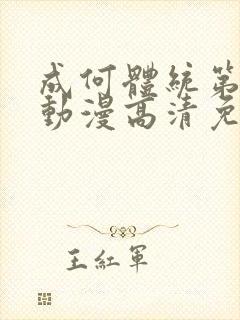 成何體統第
動漫高清免
王紅軍